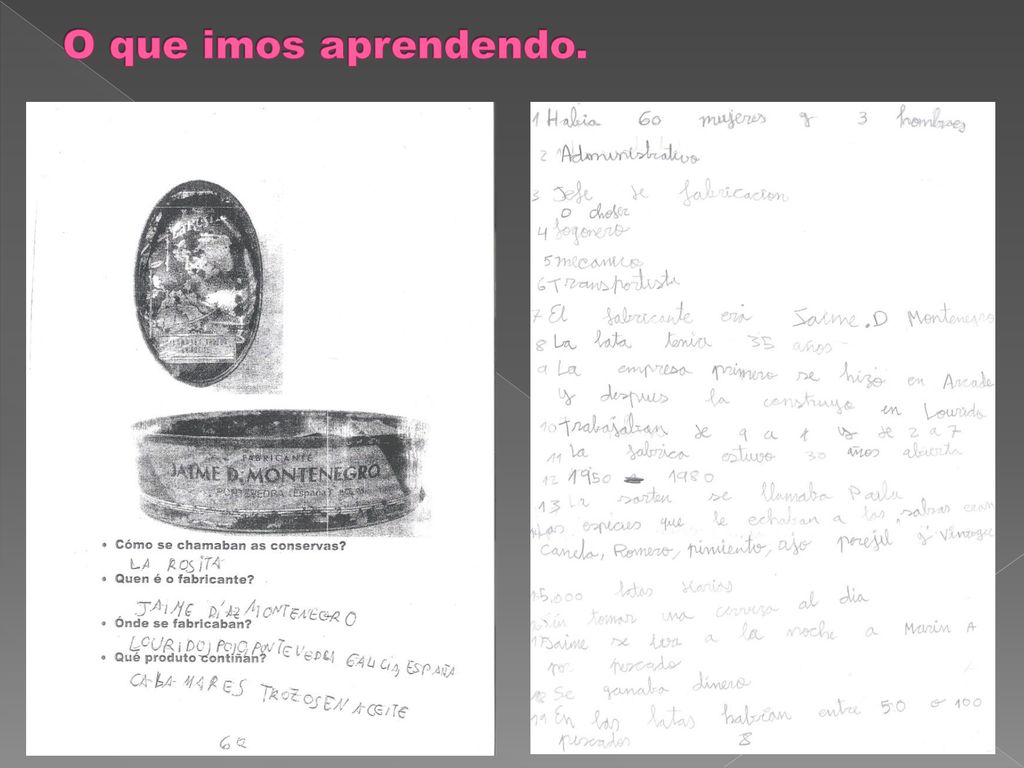 O que imos aprendendo.
FABRICANTE
JAIME D. MONTENEGRO
PONTEVEDRA (España)
• Cómo se chamaban as conservas?
LA ROSITA
• Quen é o fabricante?
JAIME DÍAZ MONTENEGRO
• Ónde se fabricaban?
LOURIDO, POIO, PONTEVEDRA GALICIA, ESPAÑA
• Qué produto contiñan?
CALAMARES TROZOS EN ACEITE
6
1 Habia 60 mujeres y 3 hombres
2 Administrativo
3 Jefe de fabricacion
O chofer
4 fogonero
5 mecanico
6 Transportista
7 El fabricante era Jaime.D Montenegro
8 La lata tenia 35 años
9 La empresa primero se hizo en Arcade
y despues la construyo en Lourido
10 Trabajaban de 9 a 1 y de 2 a 7
11 La fabrica estuvo 30 años abierta
12 1950 1980
13 La sarten se llamaba Paila
Las especies que le echaban a las salsas eran
Canela, Romero, pimiento, ajo perejil y Vinagre
15.000 latas diarias
sin tomar una cerveza al dia
Jaime se iva a la noche a Marin A
por pescado
18 Se ganaba dinero
19 En las latas habían entre 50 o 100
pescados
8